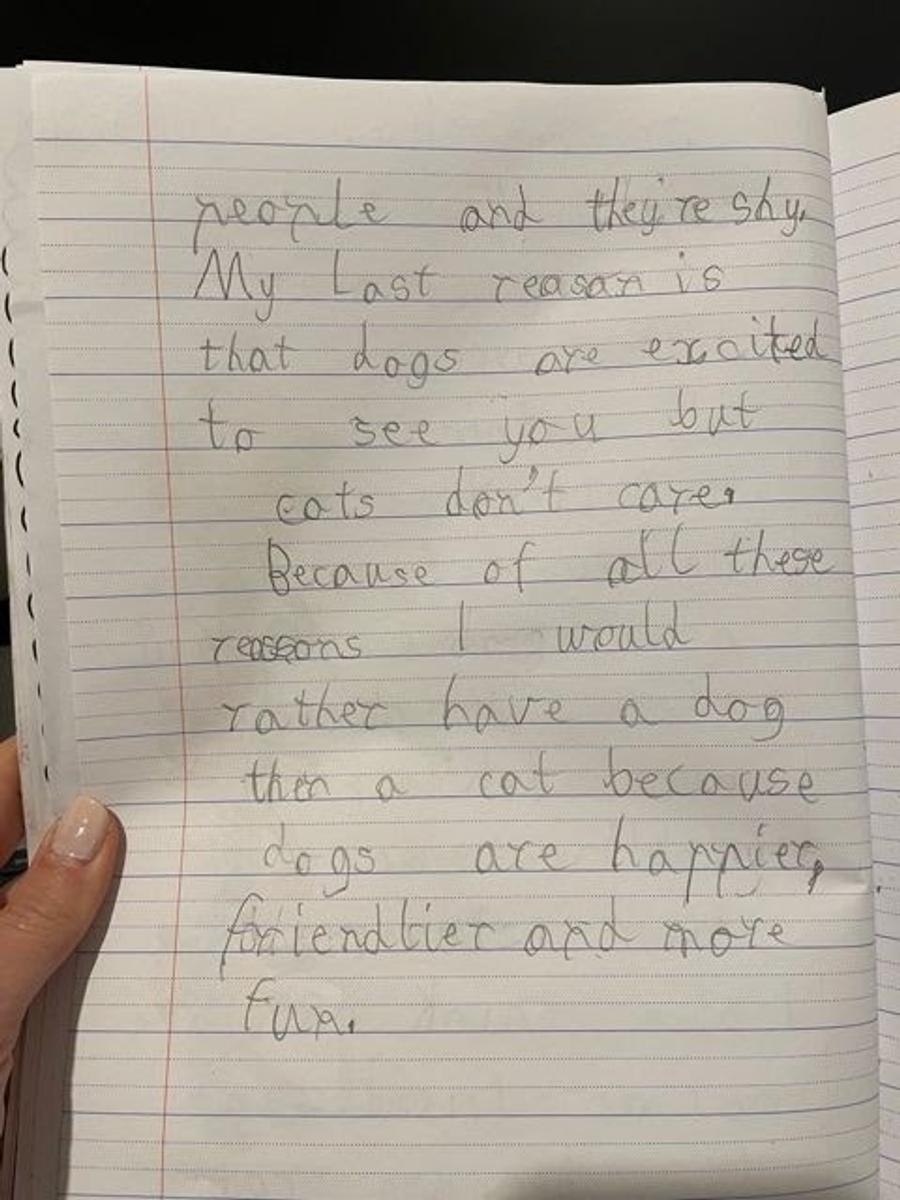 people and they're shy.
My Last reason is
that dogs are excited
to see you but
cats don't care.
Because of all these
reasons I would
rather have a dog
then a cat because
dogs are happier,
friendlier and more
fun.